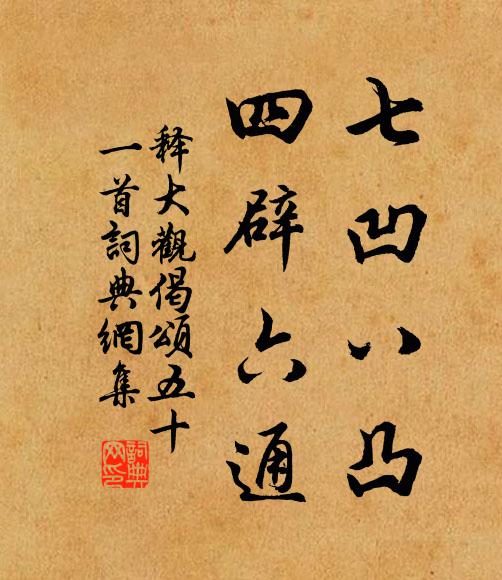 七凹八凸
四辟六通
释大觀偈頌五十
一首詞典網集
詞典
网印